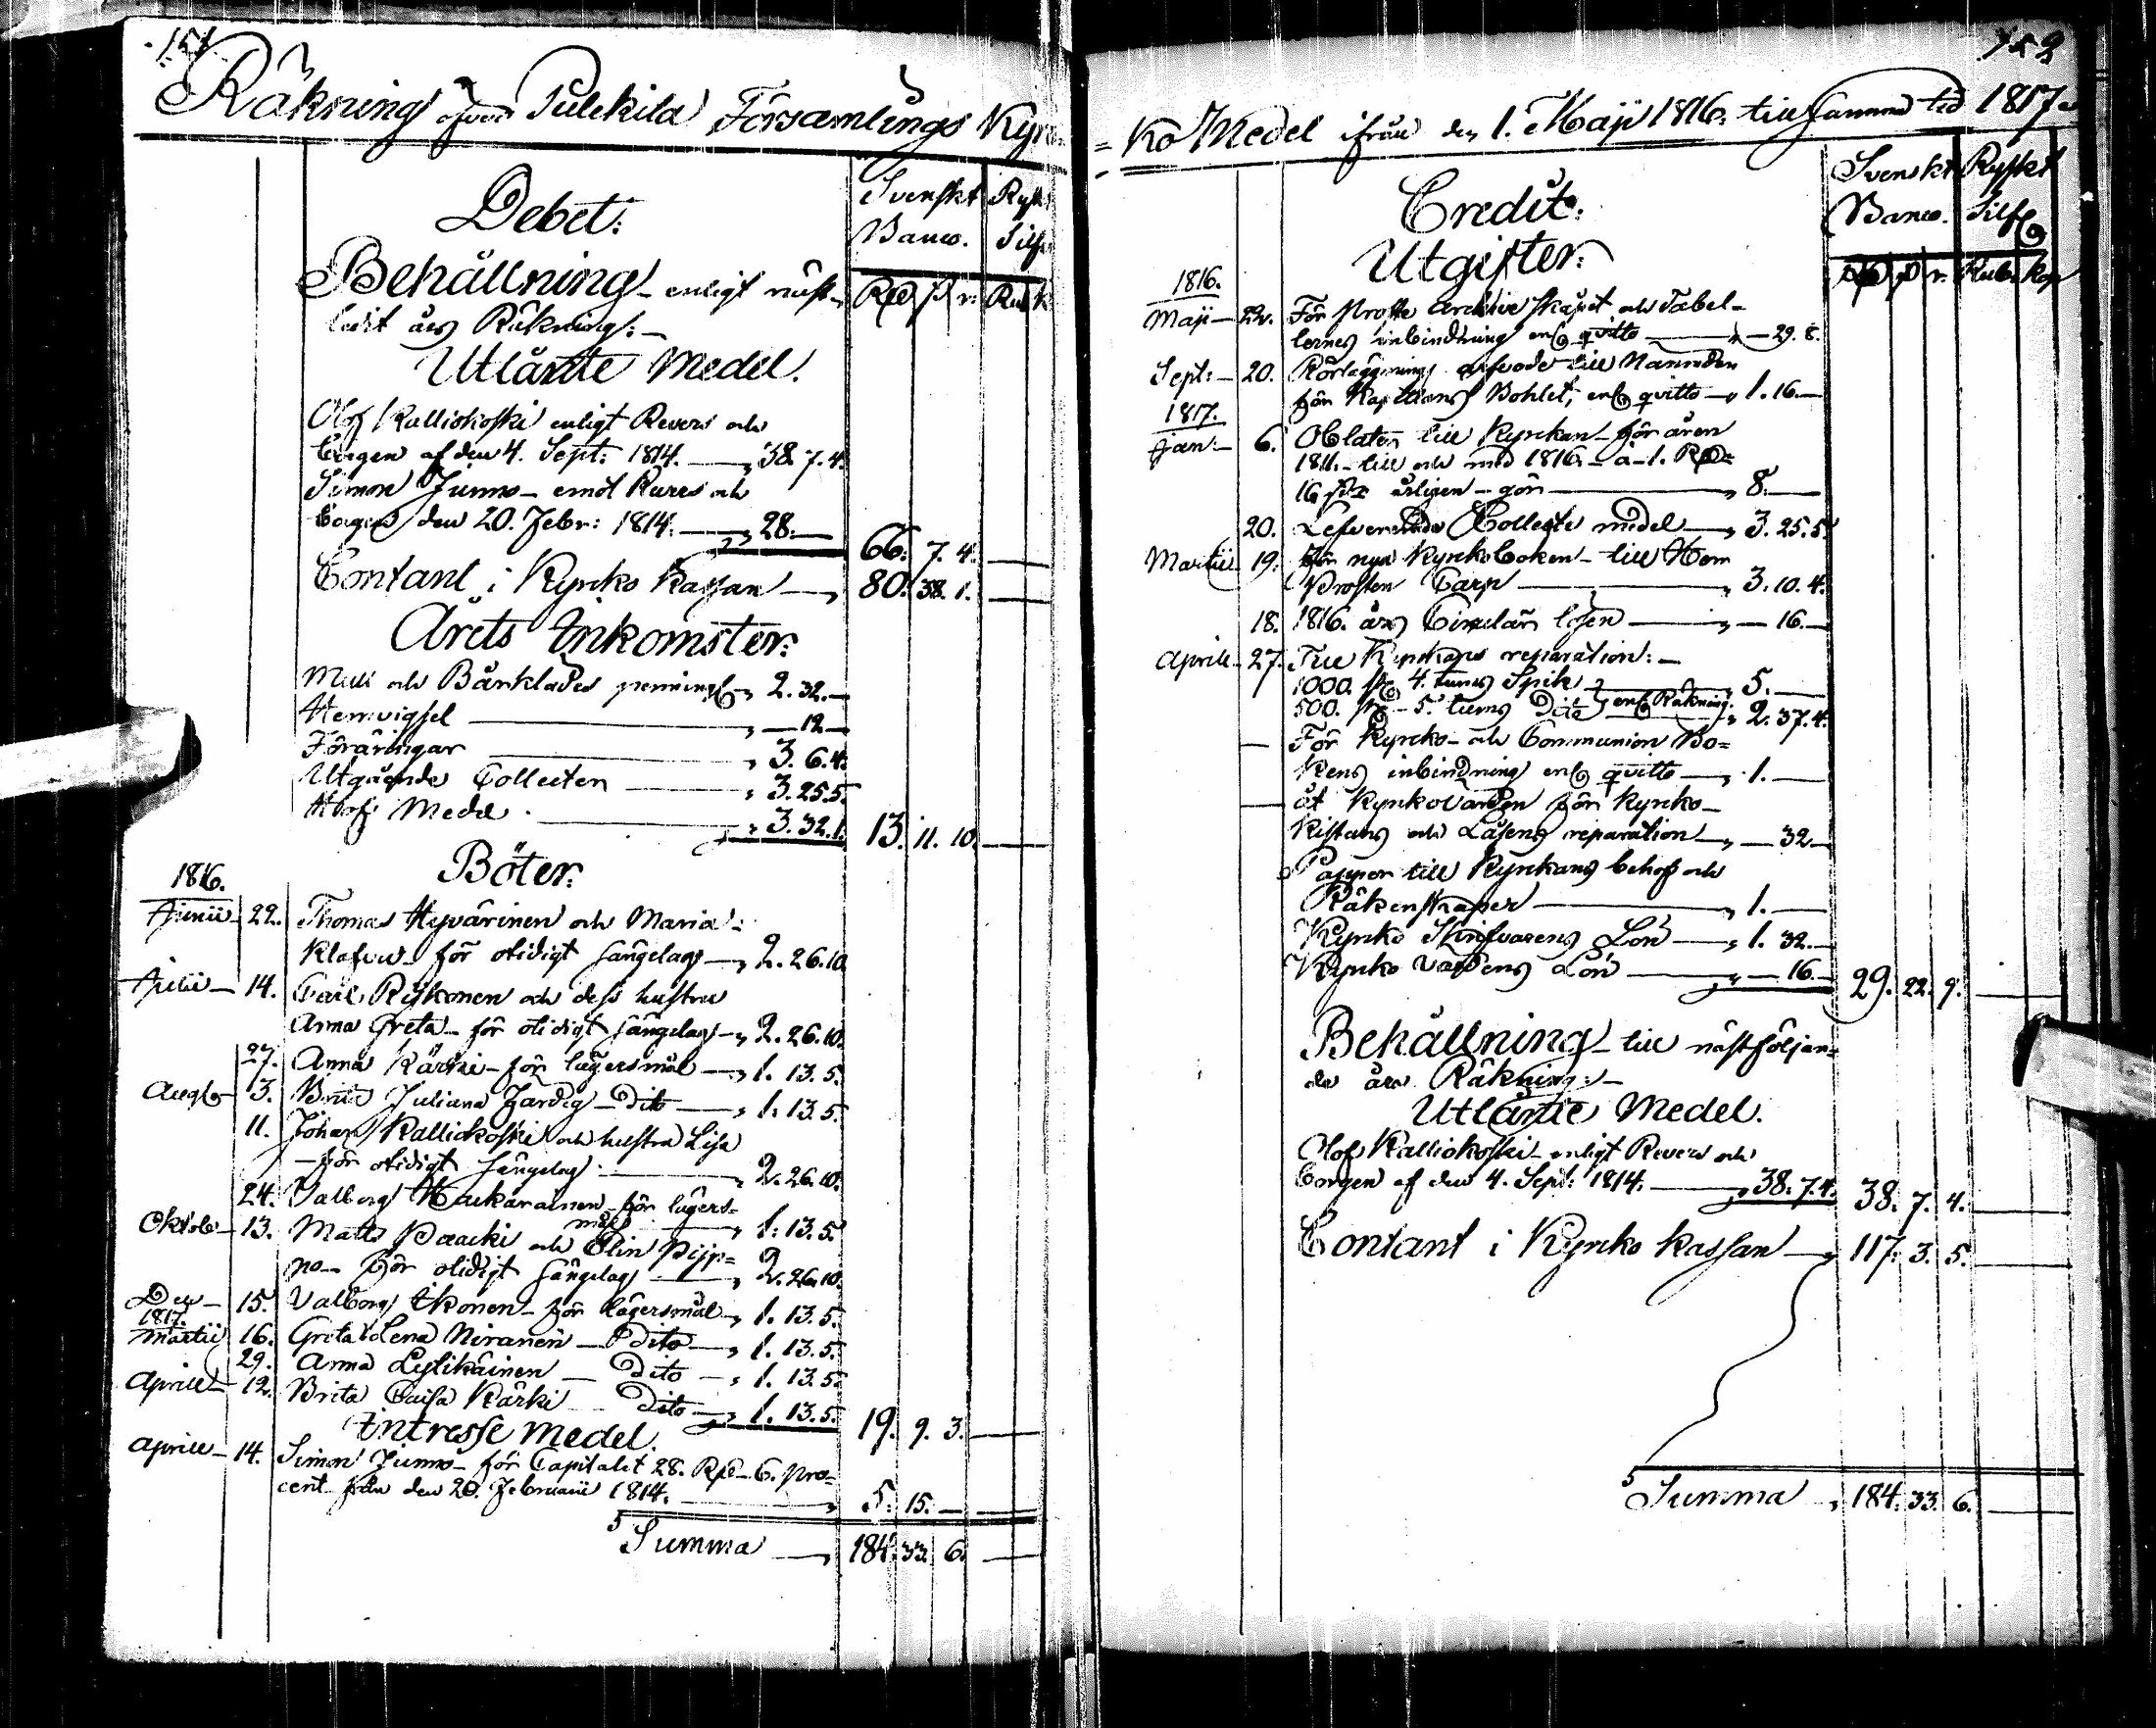 151.
Räkning öfver Pulckila Församlings Kyr=
Debet:
Svenskt
Banco.
Ryskt
Silfr
Behållning enligt näst-
ledit års Räkning:-
Rd ß r.
Rub k
Utlånte Medel.
Olof Kalliokoski enligt Revers och
borgen af den 4. Sept: 1814. — " 38. 7. 4.
Simon Junno - emot Revers och
borgen den 20. Febr: 1814. — " 28. —
66. 7. 4. —
Contant i Kyrcko Kassan — " 80. 38. 1. —
Årets Inkomster:
Mull och Bårklädes penning — " 2. 32. —
Hemvigsel — " — 12 —
Föräringar — " 3. 6. 4.
Utgående Collecten — " 3. 25. 5.
Håfs Medel — " 3. 32. 1.
13. 11. 10. —
Böter:
1816.
Junii 22. Thomas Hyvärinen och Maria
för otidigt sängelag — " 2. 26. 10
Julii — 14. Carl Ryskonen och dess hustru
Anna Greta - för otidigt sängelag — " 2. 26. 10.
27. Anna Kärki - för lägersmål — " 1. 13. 5.
Aug — 3. Brita Juliana — Dito — " 1. 13. 5.
11. Johan Kalliokoski och hustru Lisa
- för otidigt sängelag — " 2. 26. 10.
24. Valborg för lägers-
mål — " 1. 13. 5.
Oktob — 13. Matts Paacki och Elin Pijp=
po - för otidigt sängelag — " 2. 26. 10.
Dec — 15. Valborg Ikonen - för lägersmål — " 1. 13. 5.
1817.
Martii 16. Greta Lena Niranen — Dito — " 1. 13. 5.
29. Anna Lytikäinen — Dito — " 1. 13. 5.
Aprill — 12. Brita Caisa Kärki — Dito — " 1. 13. 5.
19. 9. 3. —
Intresse Medel.
Aprill — 14. Simon Junno - för Capitalet 28. Rd - 6. pro=
cent från den 20. Februarii 1814. — " 5. 15. —
Summa — " 184. 33. 6. —
153
= ko Medel ifrån den 1. Maji 1816. till samma tid 1817.
Credit:
Svenskt
Banco.
Ryskt
Silf
Utgifter:
Rd ß r.
Rub. kop
1816.
Maji — 22. För Archive skåpet och Tabel-
lernes inbindning enl qvitto — " — 29. 8.
Sept: — 20. Rörläggnings arfvode till Nämnden
för Kapellans Bohlet, enl qvitto — " 1. 16. —
1817.
Jan — 6. Oblater till Kyrckan - för åren
1811. - till och med 1816. - à - 1. Rd
16 ß årligen - gör — " 8. —
20. Lefvererade Collecte medel — " 3. 25. 5.
Martii 19. För nya Kyrckoboken - till Herr
Prosten Carp — " 3. 10. 4.
18. 1816. års Circulär lösen — " — 16. —
Aprill — 27. Till Kyrckans reparation: —
1000. st 4. tums Spik — " 5. —
500. st - 5. tums Dito enl Räkning " 2. 37. 4.
— För Kyrcko - och Communion Bo=
kens inbindning enl qvitto — " 1. —
— åt Kyrkovärden för Kyrcko-
Kistans och Låsens reparation — " — 32 —
Papper till Kyrckans behof och
Räkenskaper — " 1. —
Kyrcko Skrifvarens Lön — " 1. 32. —
Kyrcko Vaktens Lön — " — 16. —
29. 22. 9. —
Behållning - till nästföljan=
de års Räkning: —
Utlånte Medel.
Olof Kalliokoski - enligt Revers och
borgen af den 4. Sept: 1814. — " 38. 7. 4. 38. 7. 4. —
Contant i Kyrcko Kassan — " 117. 3. 5. —
Summa " 184. 33. 6. —